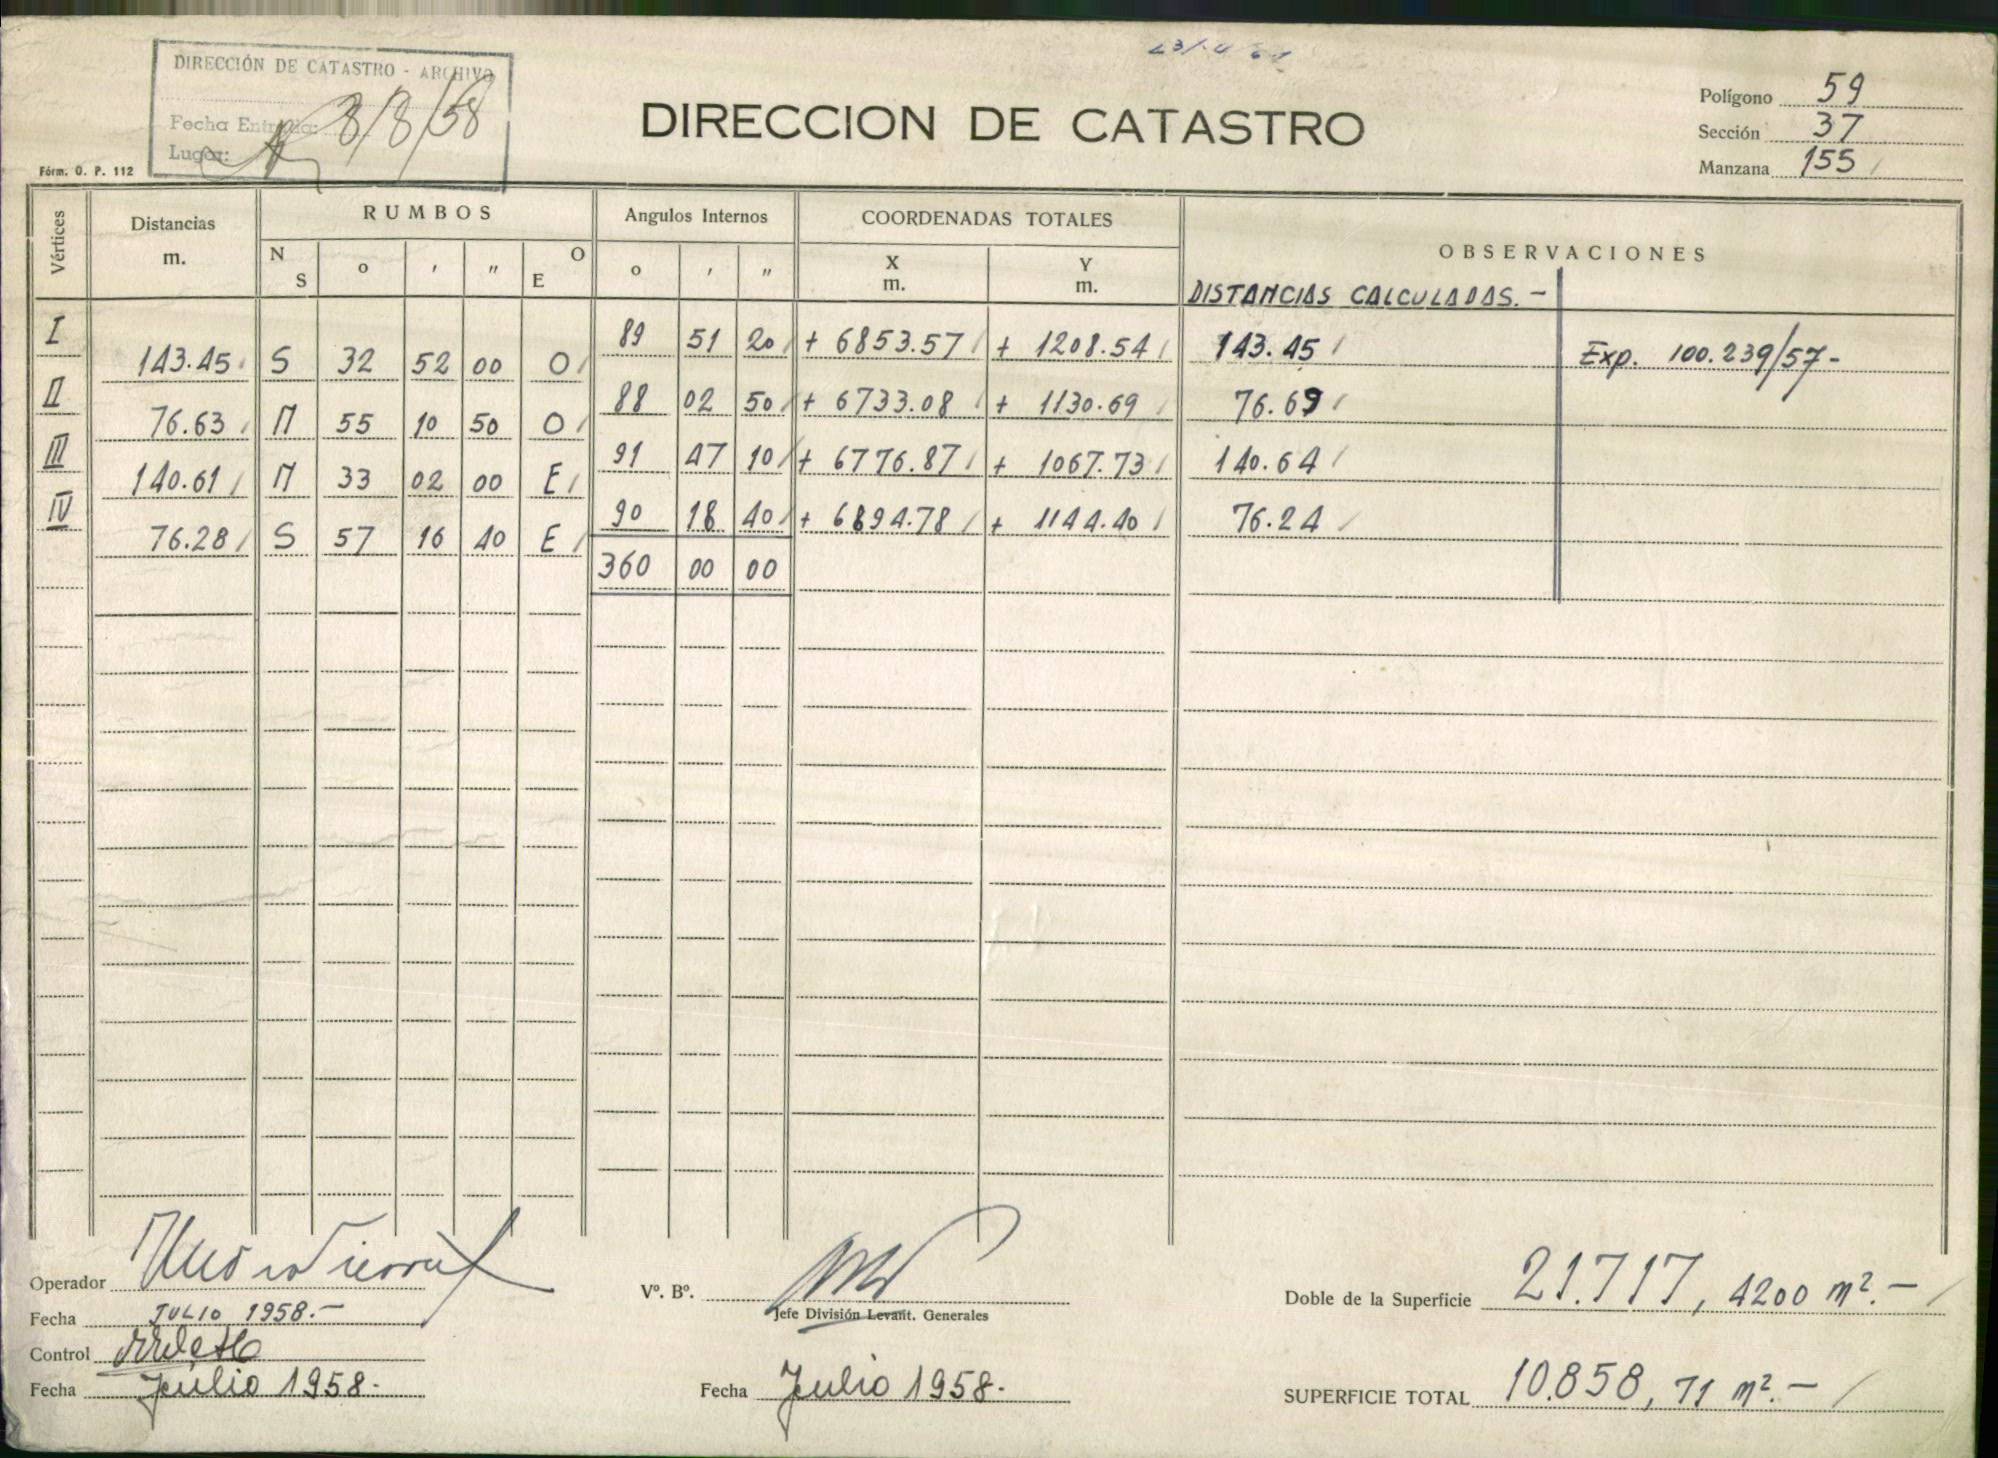 DIRECCIÓN DE CATASTRO - ARCHIVO
Fecha Entrada: 8/8/58
Lugar:
Fórm. O. P. 112
DIRECCION DE CATASTRO
Polígono 59
Sección 37
Manzana 155
Vértices Distancias m. RUMBOS Angulos Internos COORDENADAS TOTALES OBSERVACIONES
N S o ' " O E o ' " X m. Y m.
DISTANCIAS CALCULADAS.-
I 89 51 20 + 6853.57 + 1208.54 143.45 Exp. 100.239/57-
143.45 S 32 52 00 O
II 88 02 50 + 6733.08 + 1130.69 76.69
76.63 N 55 10 50 O
III 91 47 10 + 6776.87 + 1067.73 140.64
140.61 N 33 02 00 E
IV 90 18 40 + 6894.78 + 1144.40 76.24
76.28 S 57 16 40 E
360 00 00
Operador
Fecha JULIO 1958.-
Control
Fecha Julio 1958.
Vº. Bº.
Jefe División Levant. Generales
Fecha Julio 1958.
Doble de la Superficie 21.717, 4200 m².-
SUPERFICIE TOTAL 10.858, 71 m².-